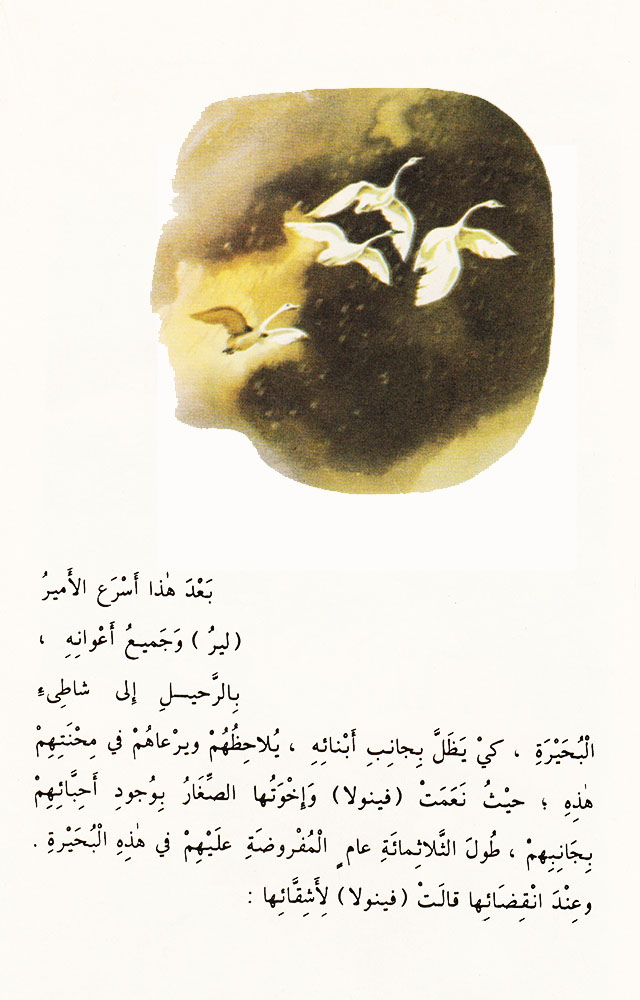 بَعْدَ هٰذا أَسْرَع الأَميرُ
(ليرُ) وَجَميعُ أَعْوانِهِ ،
بِالرَّحيـلِ إِلى شاطِىءِ
الْبُحَيْرَةِ ، كيْ يَظَلَّ بِجانِبِ أَبْنائِهِ ، يُلاحِظُهُمْ ويرْعاهُمْ في مِحْنَتِهِمْ
هٰذِهِ ؛ حيْثُ نَعَمَتْ (فينولا) وَإِخْوَتُها الصِّغَارُ بِوُجودِ أَحِبَّائِهِمْ
بِجَانِبِهمْ ، طُولَ الثَّلاثِمائَةِ عام ٍ الْمُفْروضَةِ علَيْهِمْ في هٰذِهِ الْبُحَيْرةِ .
وعِنْدَ انْقِضَائِها قالَتْ (فينولا) لِأَشِقَّائِها :